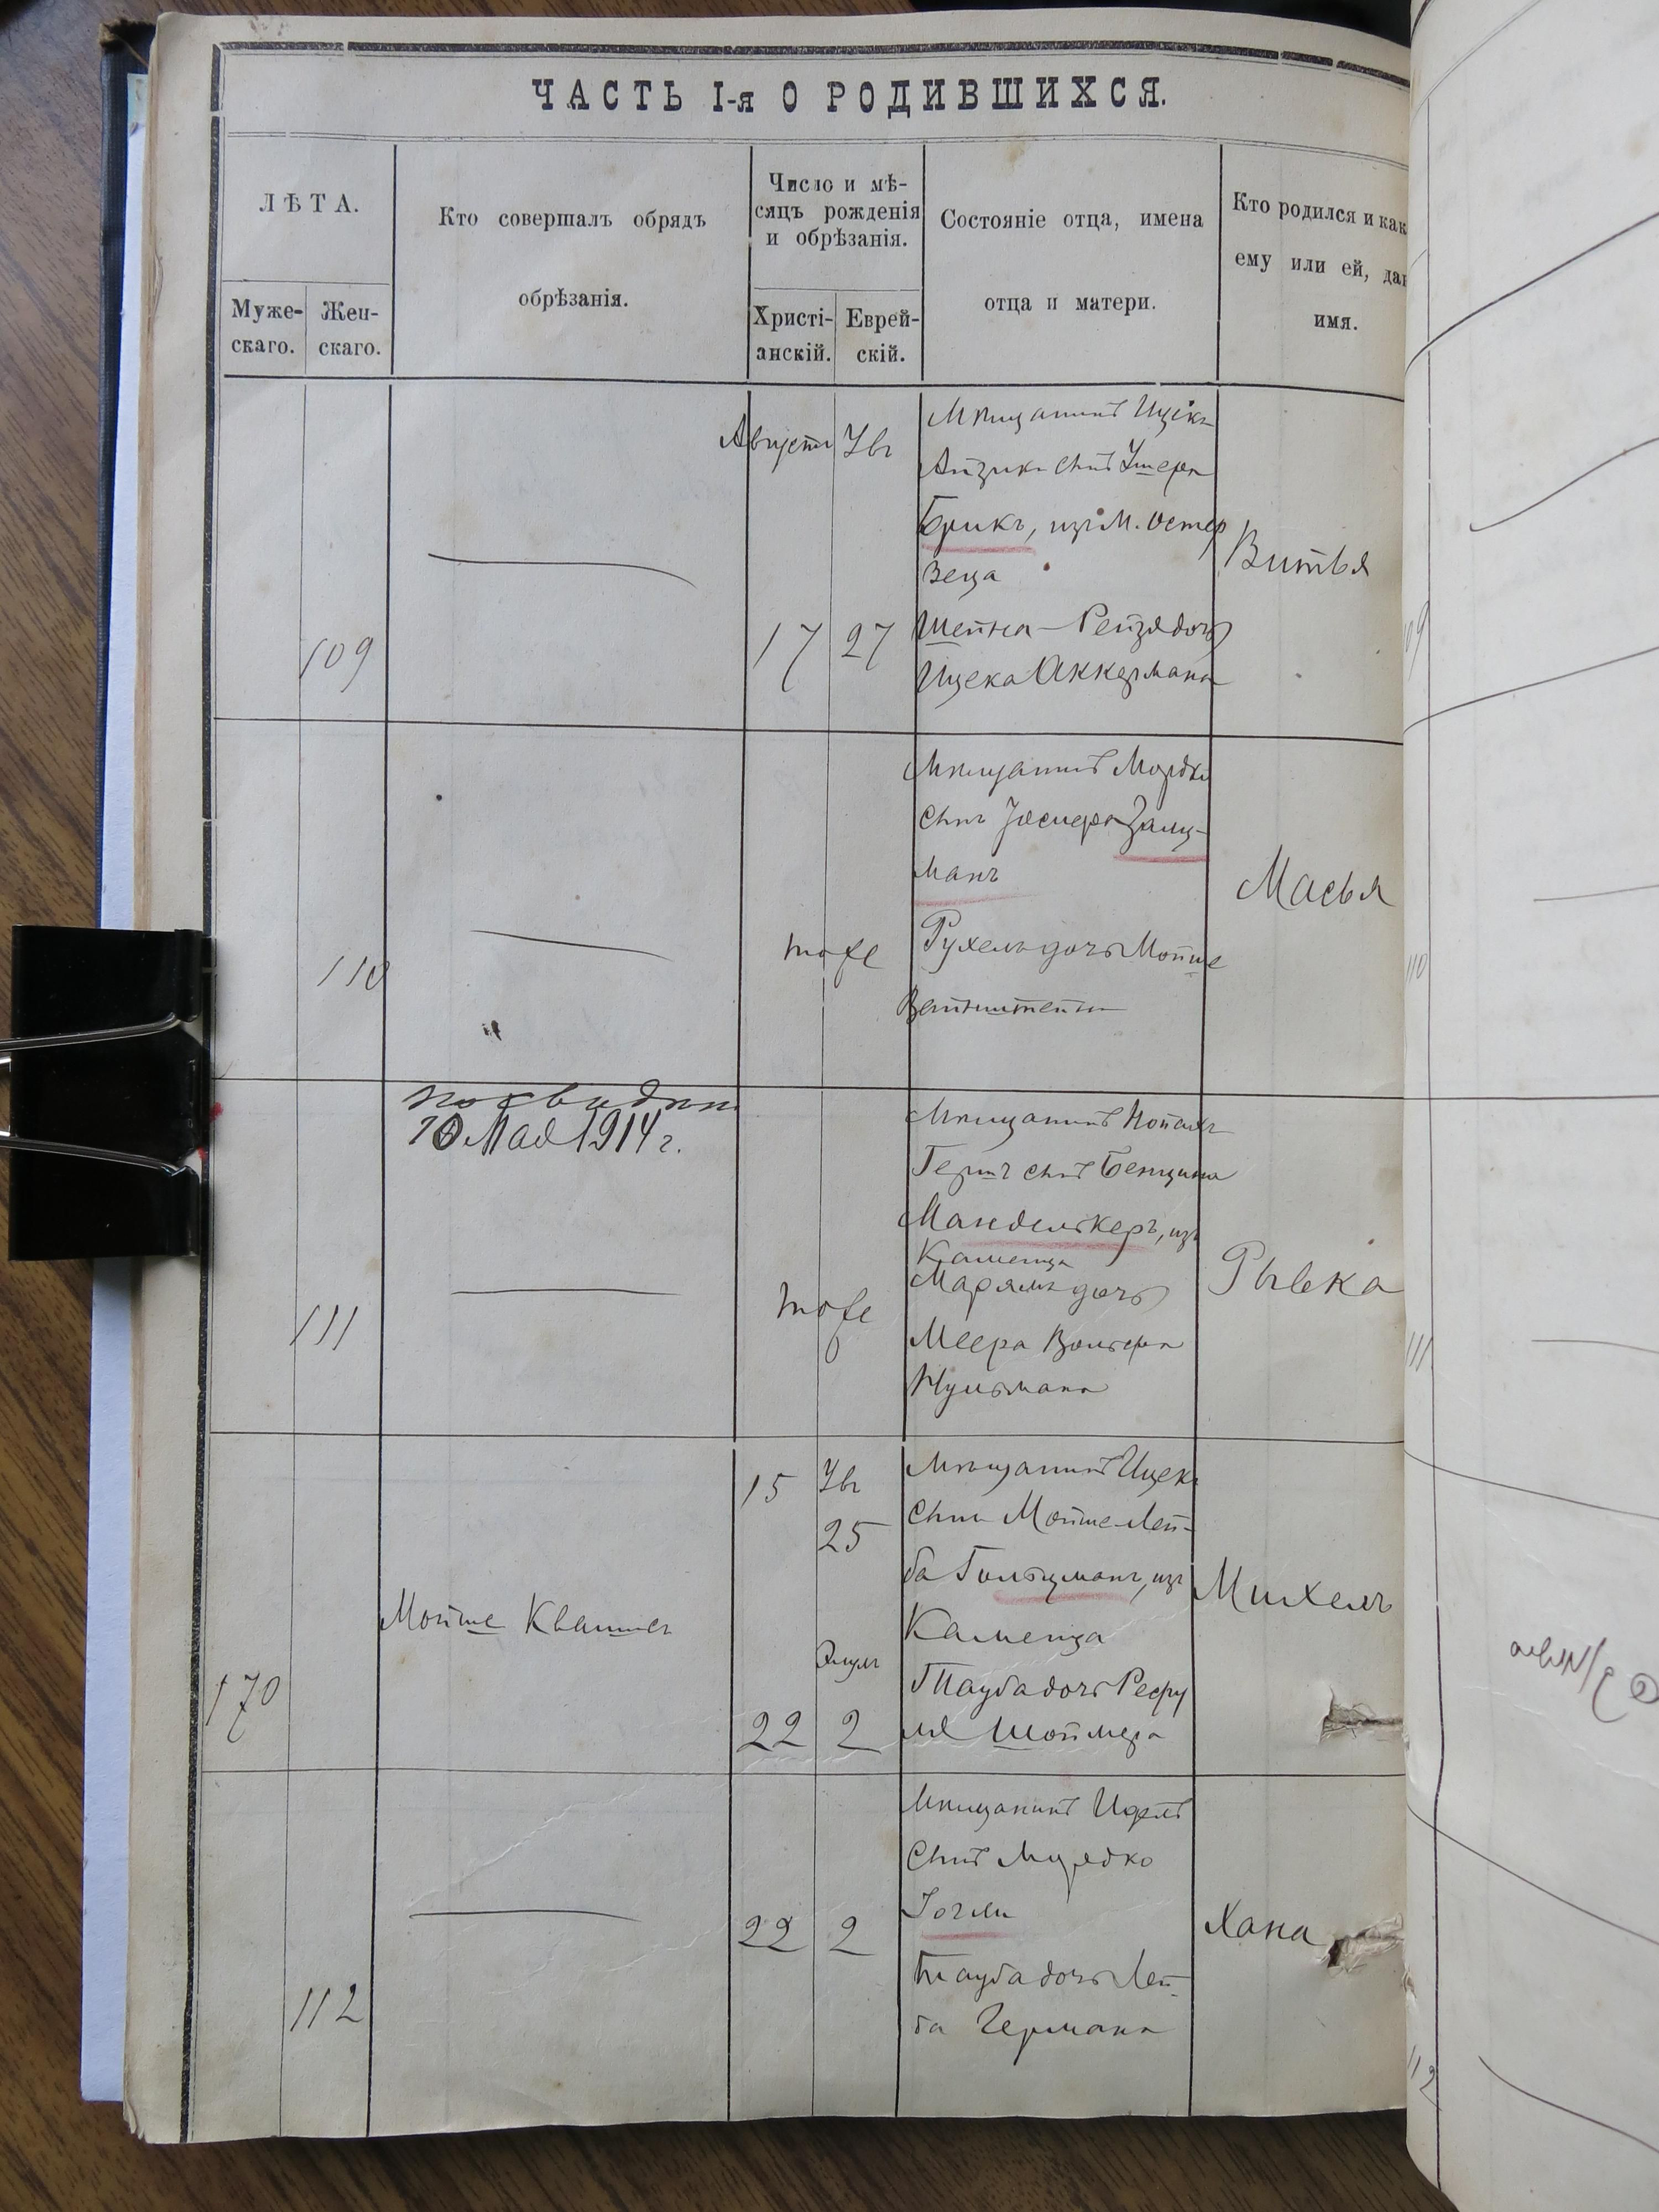 ЧАСТЬ I-я О РОДИВШИХСЯ.
ЛѢТА.
Муже-
скаго.
Жен-
скаго.
Кто совершалъ обрядъ
обрѣзанія.
Число и мѣ-
сяцъ рожденія
и обрѣзанія.
Христі-
анскій.
Еврей-
скій.
Состояніе отца, имена
отца и матери.
Кто родился и как
ему или ей, дан
имя.
109
Августа
17
Увъ
27
Мѣщанинъ Ицекъ
Айзикъ сынъ Ушера
Брикъ, изъ М. Остер
веца
Шейна-Рейзя дочь
Ицека Аккермана
Витья
110
тоже
Мѣщанинъ Мордко
сынъ Іосифа Залц-
манъ
Рухель дочь Мойше
Вейнштейна
Масья
111
10 Мая 1914 г.
тоже
Мѣщанинъ
Гершъ сынъ Бенциона
Мандалькеръ, изъ
Каменца
Марямъ дочь
Меера Вольфа
Нульмана
Рывка
170
Мойше Квашнеръ
15
22
Увъ
25
Элулъ
2
Мѣщанинъ Ицекъ
сынъ Мойше-Лей-
ба Гольцманъ, изъ
Каменца
Тауба дочь Рефу
ля Шоймера
Михель
112
22
2
Мѣщанинъ Идель
сынъ Мордко
Тауба дочь Лей-
ба Германа
Хана
109
110
111
112